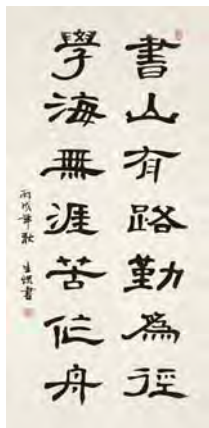 書山有路勤爲徑
學海無涯苦作舟
丙戌年秋